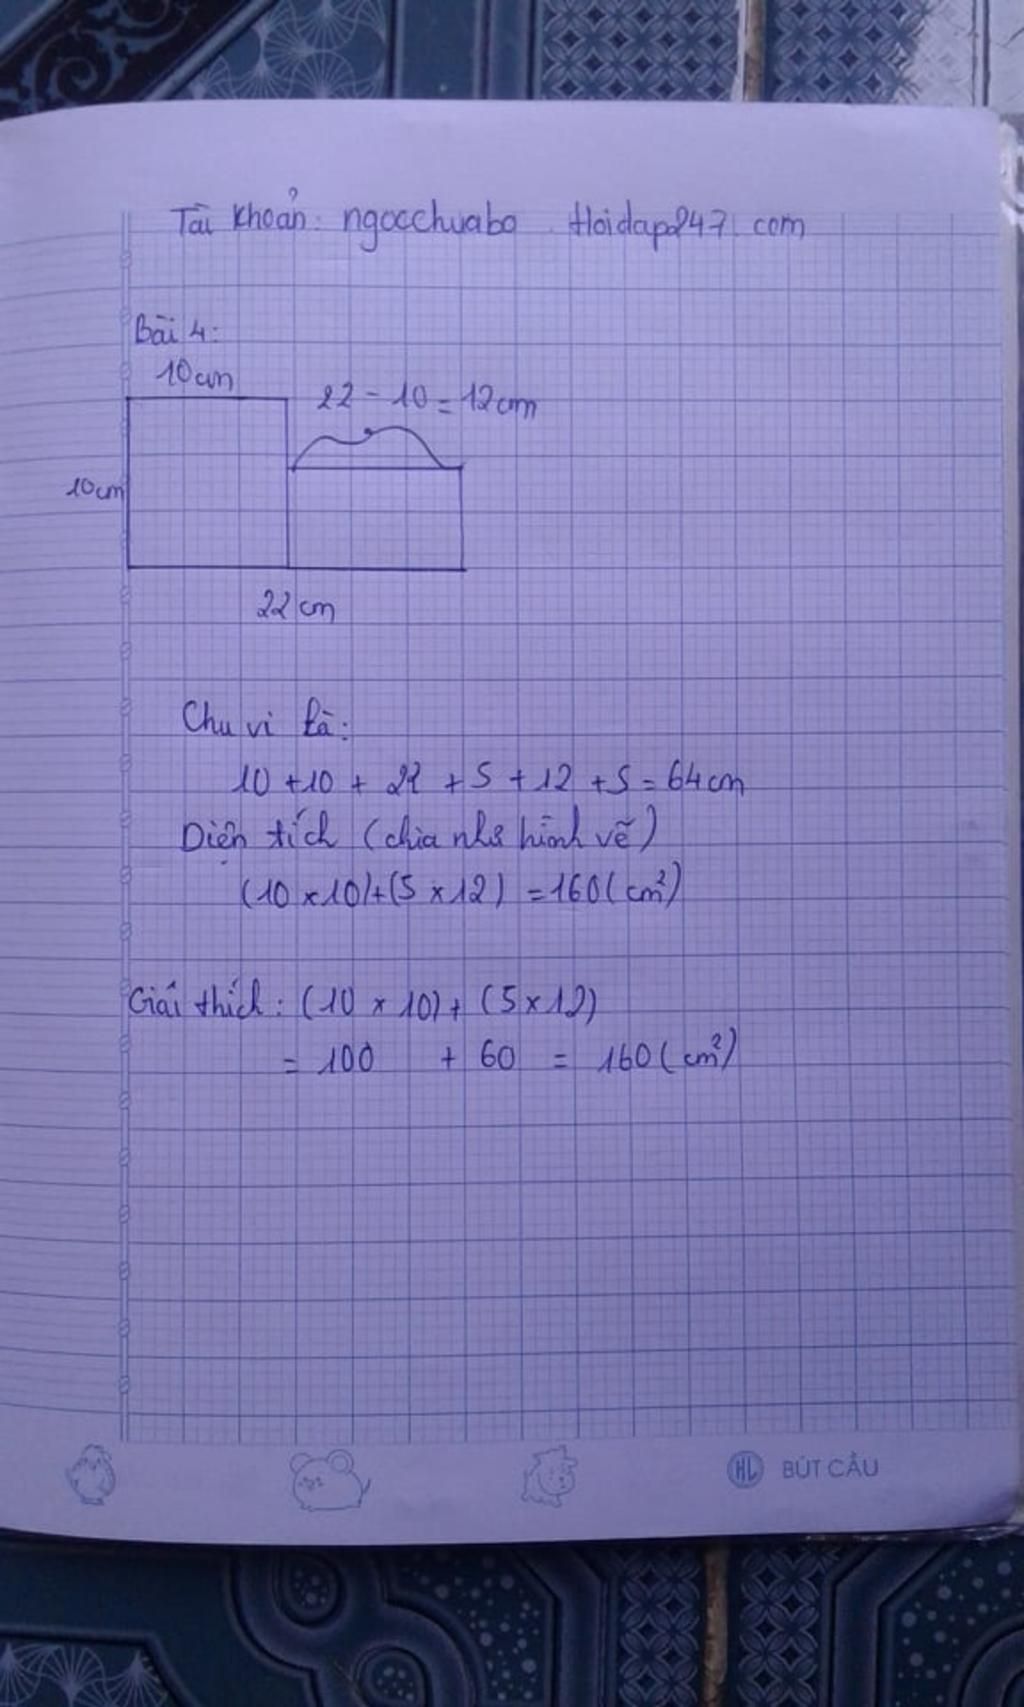 Tài khoản: ngocchuabo. Hoidap247.com
Bài 4:
10cm
22 - 10 = 12cm
10cm
22 cm
Chu vi là:
10 + 10 + 22 + 5 + 12 + 5 = 64cm
Diện tích (chia như hình vẽ)
(10 x 10) + (5 x 12) = 160 (cm²)
Giải thích: (10 x 10) + (5 x 12)
= 100 + 60 = 160 (cm²)
HL BÚT CẦU